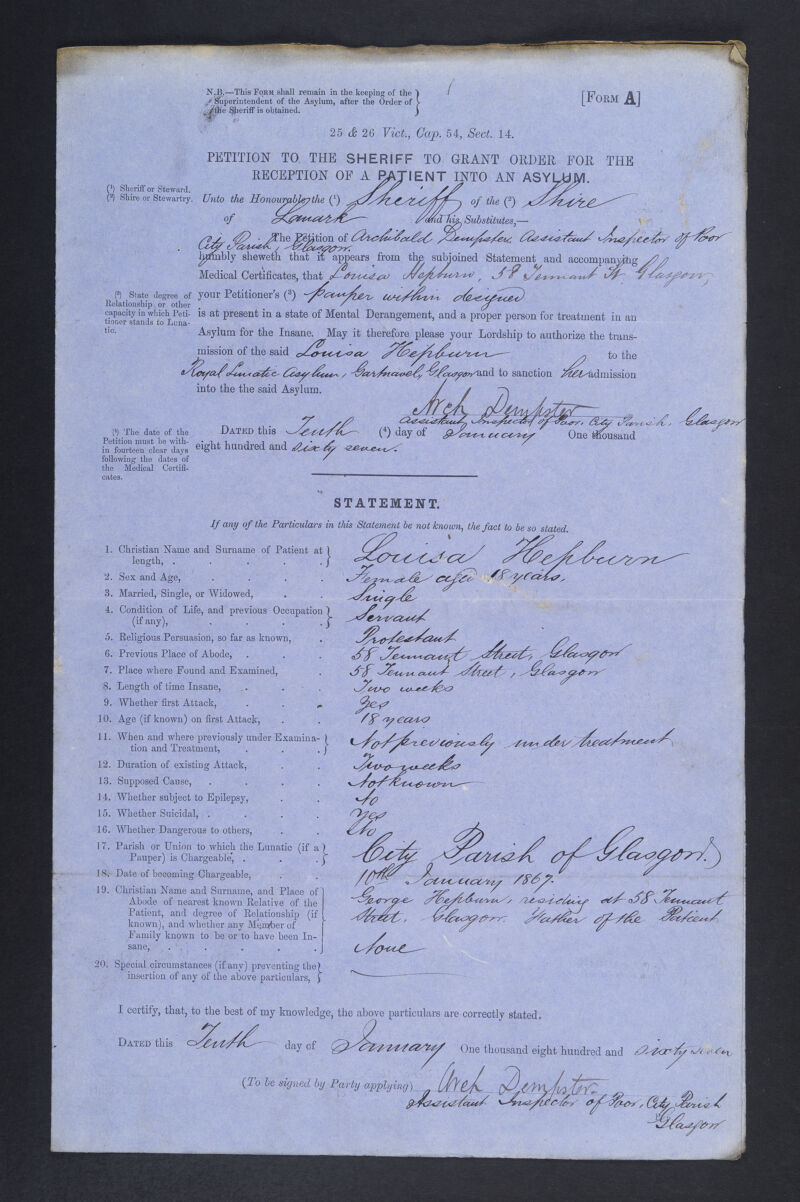 N.B.—This Form shall remain in the keeping of the
Superintendent of the Asylum, after the Order of
the Sheriff is obtained.
[Form A]
25 & 26 Vict., Cap. 54, Sect. 14.
PETITION TO THE SHERIFF TO GRANT ORDER FOR THE
RECEPTION OF A PATIENT INTO AN ASYLUM.
(1) Sheriff or Steward.
(2) Shire or Stewartry.
Unto the Honourable the (1) Sheriff of the (2) Shire
of Lanark and his Substitutes,—
The Petition of Archibald Dempster Assistant Inspector of Poor
City Parish, Glasgow.
humbly sheweth that it appears from the subjoined Statement and accompanying
Medical Certificates, that Louisa Hepburn, 58 Tennant St. Glasgow,
(3) State degree of
Relationship or other
capacity in which Peti-
tioner stands to Luna-
tic.
your Petitioner's (3) pauper within designed
is at present in a state of Mental Derangement, and a proper person for treatment in an
Asylum for the Insane. May it therefore please your Lordship to authorize the trans-
mission of the said Louisa Hepburn to the
Royal Lunatic Asylum, Gartnavel, Glasgow and to sanction her admission
into the the said Asylum.
Arch Dempster
Assistant Inspector of Poor, City Parish, Glasgow
(4) The date of the
Petition must be with-
in fourteen clear days
following the dates of
the Medical Certifi-
cates.
Dated this Tenth (4) day of January One thousand
eight hundred and sixty seven.
STATEMENT.
If any of the Particulars in this Statement be not known, the fact to be so stated.
1. Christian Name and Surname of Patient at length, . Louisa Hepburn
2. Sex and Age, Female aged 18 years.
3. Married, Single, or Widowed, Single
4. Condition of Life, and previous Occupation (if any), Servant
5. Religious Persuasion, so far as known, Protestant
6. Previous Place of Abode, 58 Tennant Street, Glasgow
7. Place where Found and Examined, 58 Tennant Street, Glasgow
8. Length of time Insane, Two weeks
9. Whether first Attack, Yes
10. Age (if known) on first Attack, 18 years
11. When and where previously under Examina-
tion and Treatment, Not previously under treatment
12. Duration of existing Attack, Two weeks
13. Supposed Cause, Not known
14. Whether subject to Epilepsy, No
15. Whether Suicidal, Yes
16. Whether Dangerous to others, No
17. Parish or Union to which the Lunatic (if a
Pauper) is Chargeable, City Parish of Glasgow.
18. Date of becoming Chargeable, 10th January 1867.
19. Christian Name and Surname, and Place of
Abode of nearest known Relative of the
Patient, and degree of Relationship (if
known), and whether any Member of
Family known to be or to have been In-
sane,
George Hepburn, residing at 58 Tennant
Street, Glasgow. Father of the Patient
None
20. Special circumstances (if any) preventing the
insertion of any of the above particulars,
I certify, that, to the best of my knowledge, the above particulars are correctly stated.
Dated this Tenth day of January One thousand eight hundred and sixty seven
(To be signed by Party applying) Arch Dempster.
Assistant Inspector of Poor, City Parish
Glasgow